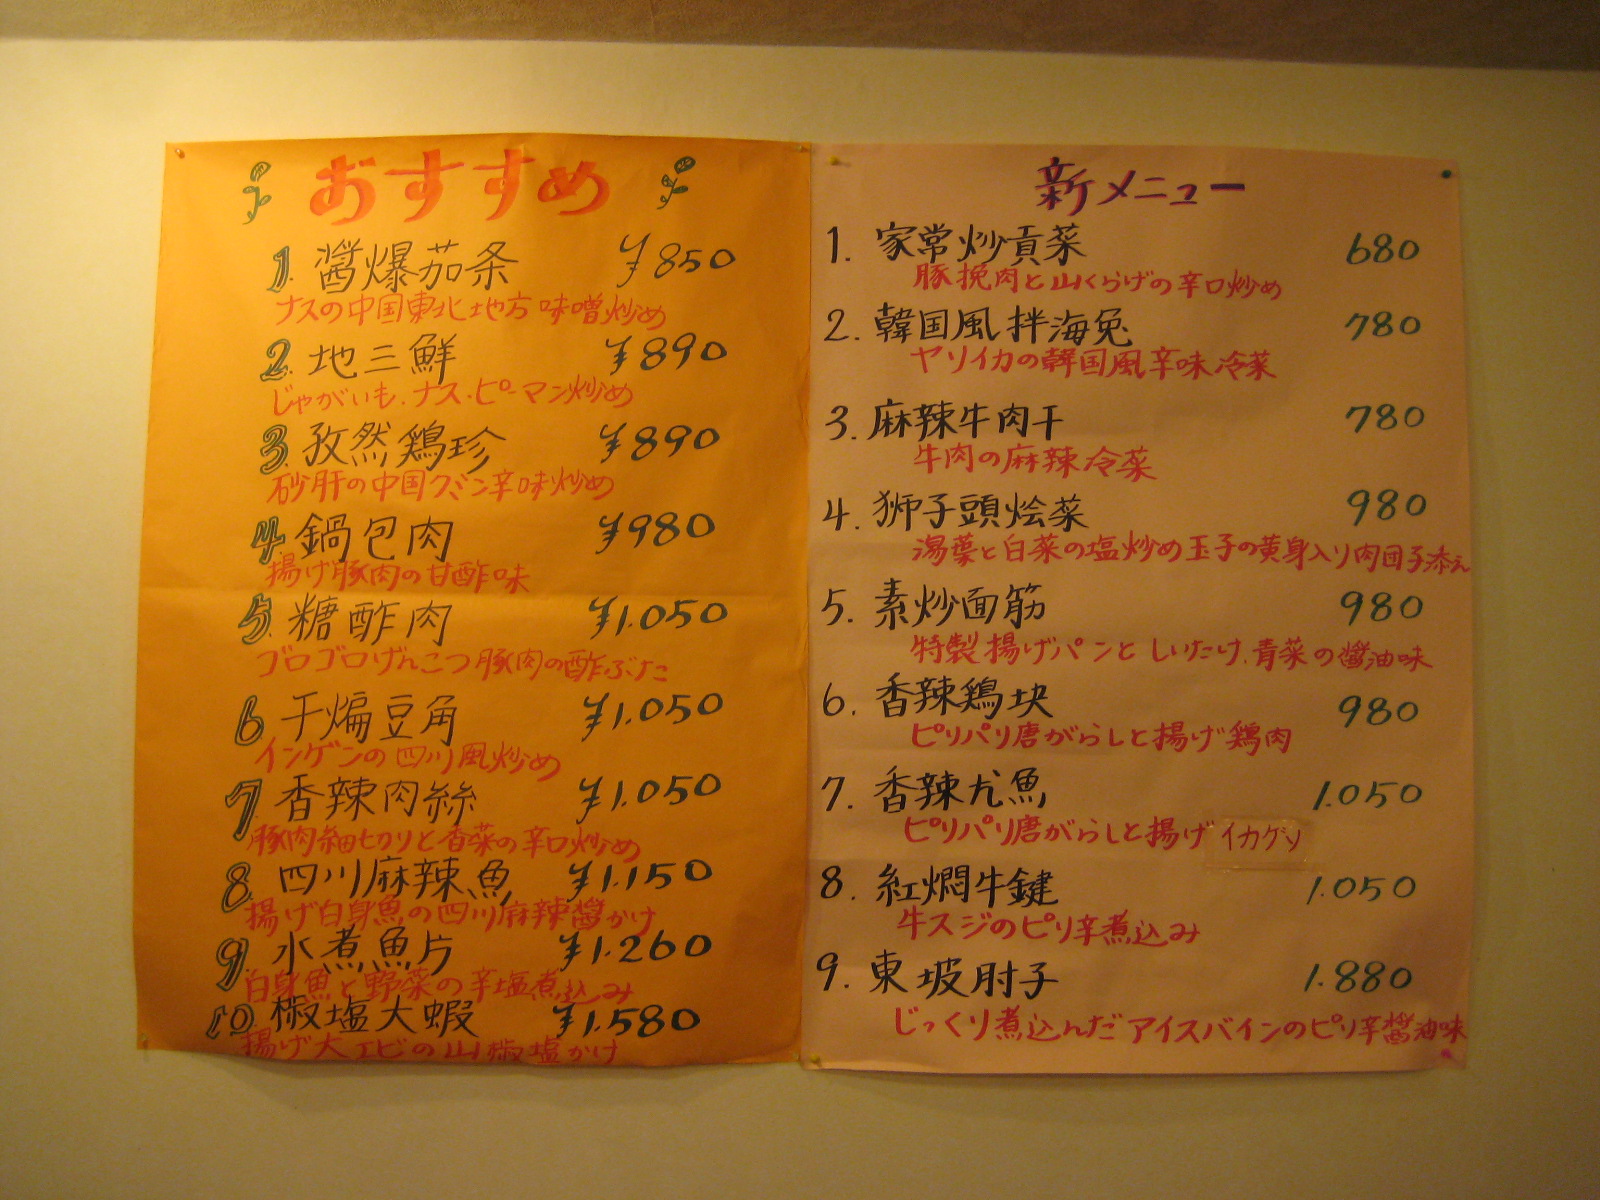 おすすめ
1. 醤爆茄条 ¥850
ナスの中国東北地方味噌炒め
2. 地三鮮 ¥890
じゃがいも.ナス.ピーマン炒め
3. 孜然鶏珍 ¥890
砂肝の中国クミン辛味炒め
4. 鍋包肉 ¥980
揚げ豚肉の甘酢味
5. 糖酢肉 ¥1.050
ゴロゴロげんこつ豚肉の酢ぶた
6 干煸豆角 ¥1.050
インゲンの四川風炒め
7 香辣肉絲 ¥1.050
豚肉細切りと香菜の辛口炒め
8. 四川麻辣魚 ¥1.150
揚げ白身魚の四川麻辣醤かけ
9. 水煮魚片 ¥1.260
白身魚と野菜の辛塩煮込み
10. 椒塩大蝦 ¥1.580
揚げ大エビの山椒塩かけ
新メニュー
1. 家常炒貢菜 680
豚挽肉と山くらげの辛口炒め
2. 韓国風拌海兔 780
ヤリイカの韓国風辛味冷菜
3. 麻辣牛肉干 780
牛肉の麻辣冷菜
4. 狮子頭烩菜 980
湯葉と白菜の塩炒め玉子の黄身入り肉団子添え
5. 素炒面筋 980
特製揚げパンとしいたけ.青菜の醤油味
6. 香辣鶏块 980
ピリパリ唐がらしと揚げ鶏肉
7. 香辣尤魚 1.050
ピリパリ唐がらしと揚げイカゲソ
8. 紅燜牛鍵 1.050
牛スジのピリ辛煮込み
9. 東坡肘子 1.880
じっくり煮込んだアイスバインのピリ辛醤油味